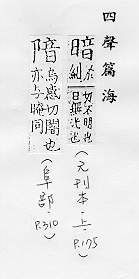 四聲篇海
暗
烏紺切不明也
日無光也
(元刊本.上.P.175)
隌
烏感切闇也
亦与晻同
(阜部.P.310)